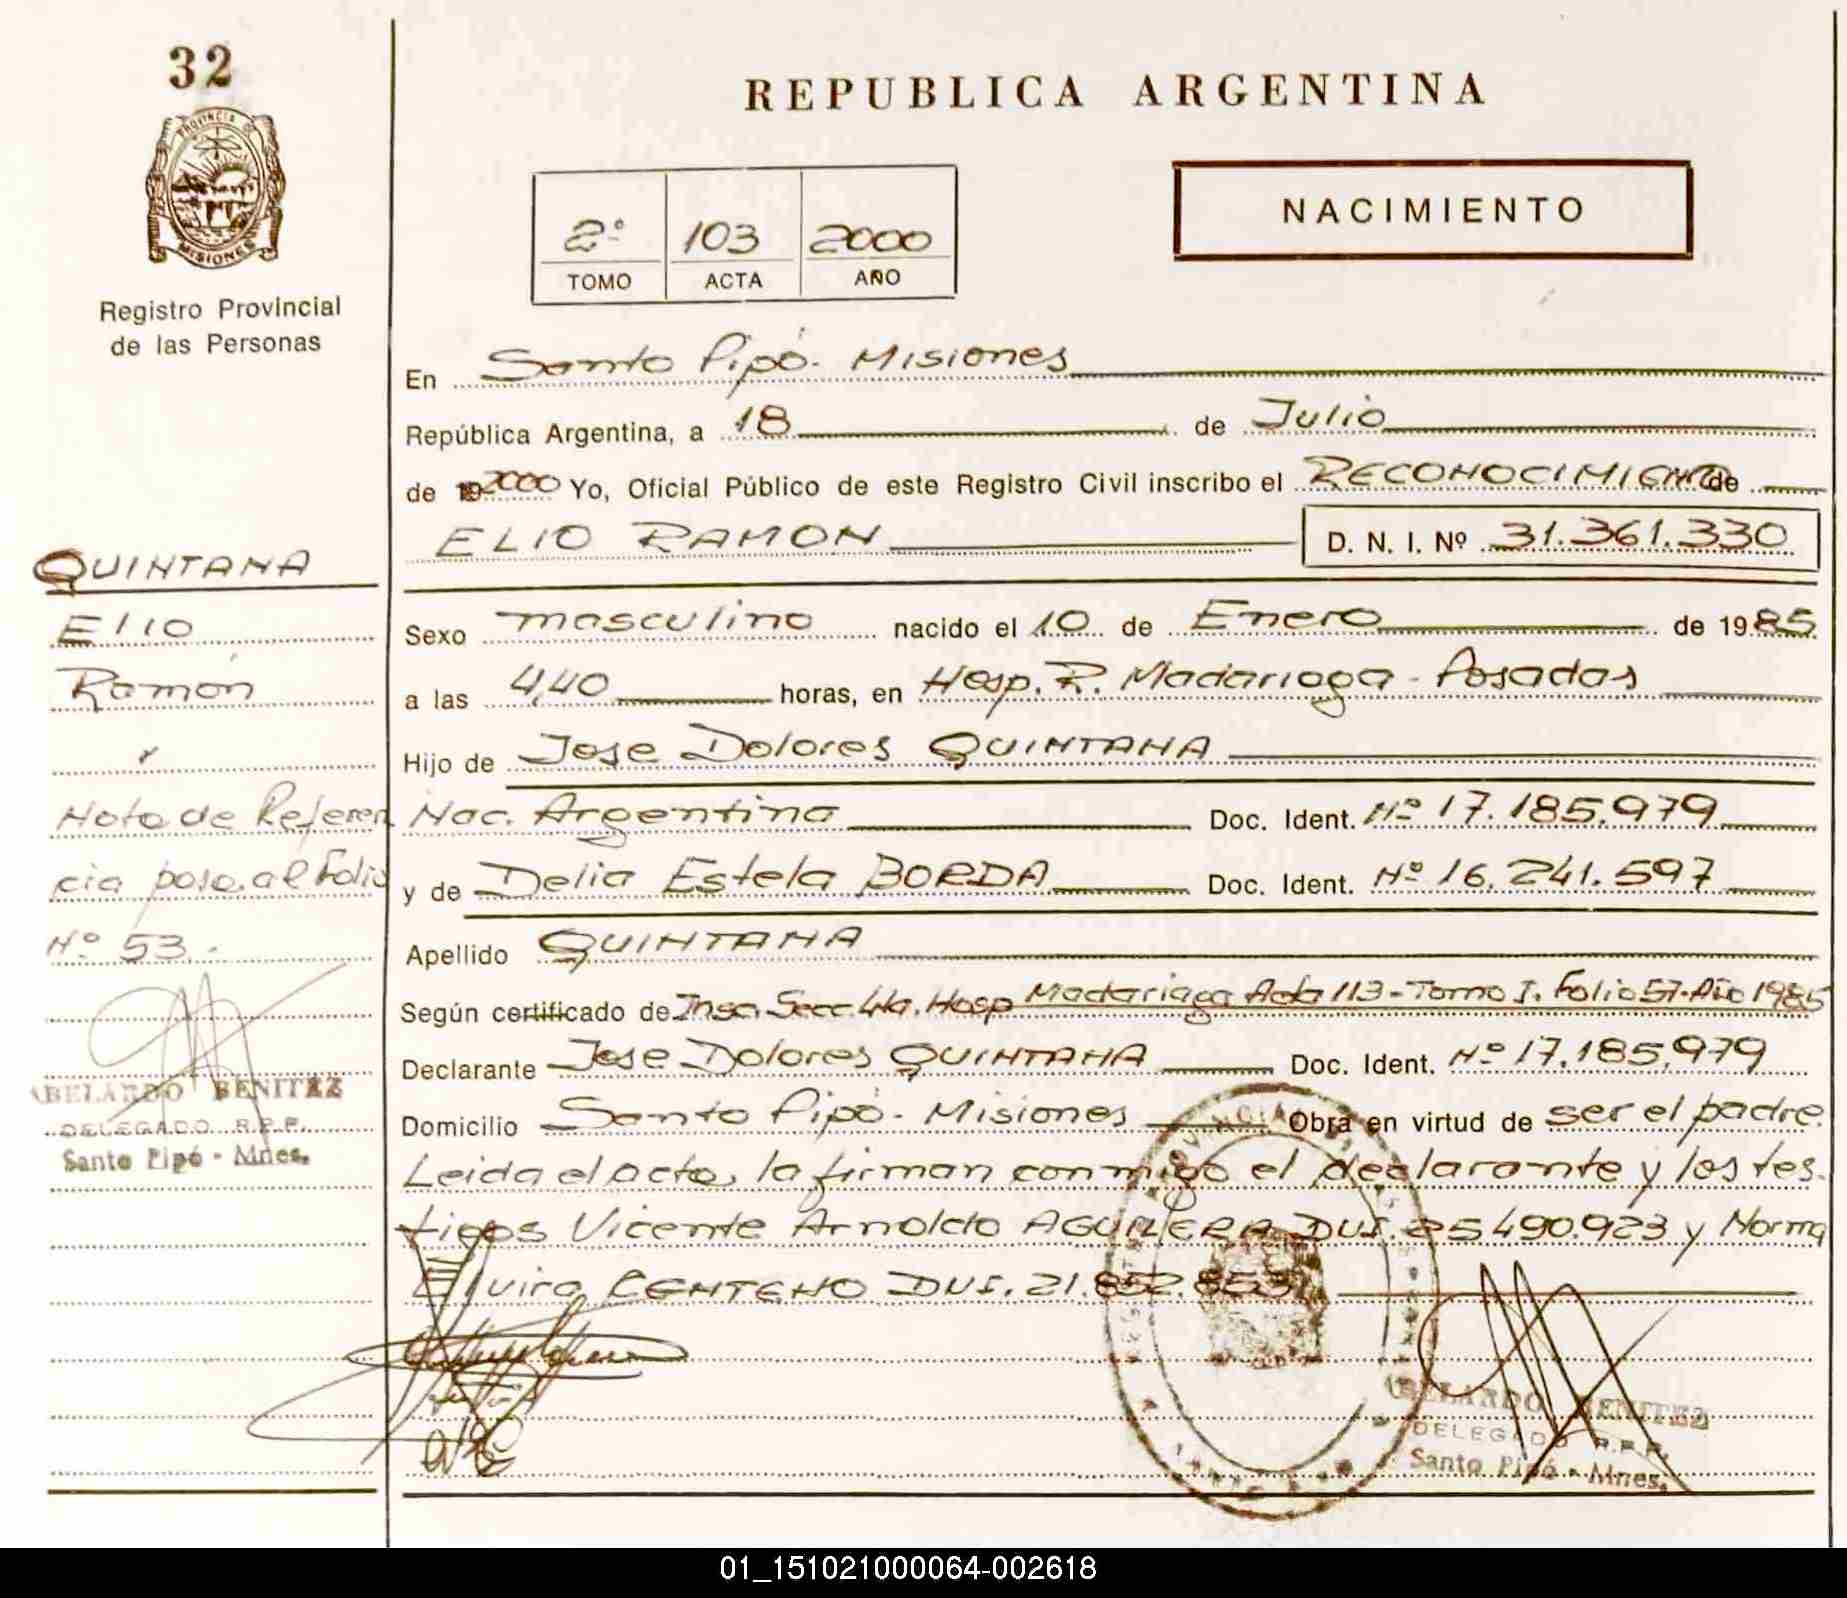 32
PROVINCIA DE
MISIONES
Registro Provincial
de las Personas
REPUBLICA ARGENTINA
2º 103 2000
TOMO ACTA AÑO
NACIMIENTO
En Santo Pipó - Misiones
República Argentina, a 18 de Julio
de 19 2000 Yo, Oficial Público de este Registro Civil inscribo el RECONOCIMIENTO de
ELIO RAMON D. N. I. Nº 31.361.330
QUINTANA
Elio
Ramón
Nota de Referen
cia pasa al Folio
Nº 53.
ABELARDO BENITEZ
DELEGADO R.P.P.
Santo Pipó - Mnes.
Sexo masculino nacido el 10 de Enero de 1985
a las 4,40 horas, en Hosp. R. Madariaga - Posadas
Hijo de Jose Dolores QUINTANA
Nac. Argentina Doc. Ident. Nº 17.185.979
y de Delia Estela BORDA Doc. Ident. Nº 16.241.597
Apellido QUINTANA
Según certificado de Insc. Secc. 4ta. Hosp Madariaga Acta 113 - Tomo I. Folio 57. Año 1985
Declarante Jose Dolores QUINTANA Doc. Ident. Nº 17.185.979
Domicilio Santo Pipó - Misiones Obra en virtud de ser el padre.
Leida el acta, la firman conmigo el declarante y los tes-
tigos Vicente Arnoldo AGUILERA DUI. 25.490.923 y Norma
Elvira CENTENO DUI. 21.852.853
ABELARDO BENITEZ
DELEGADO R.P.P.
Santo Pipó - Mnes.
01_151021000064-002618